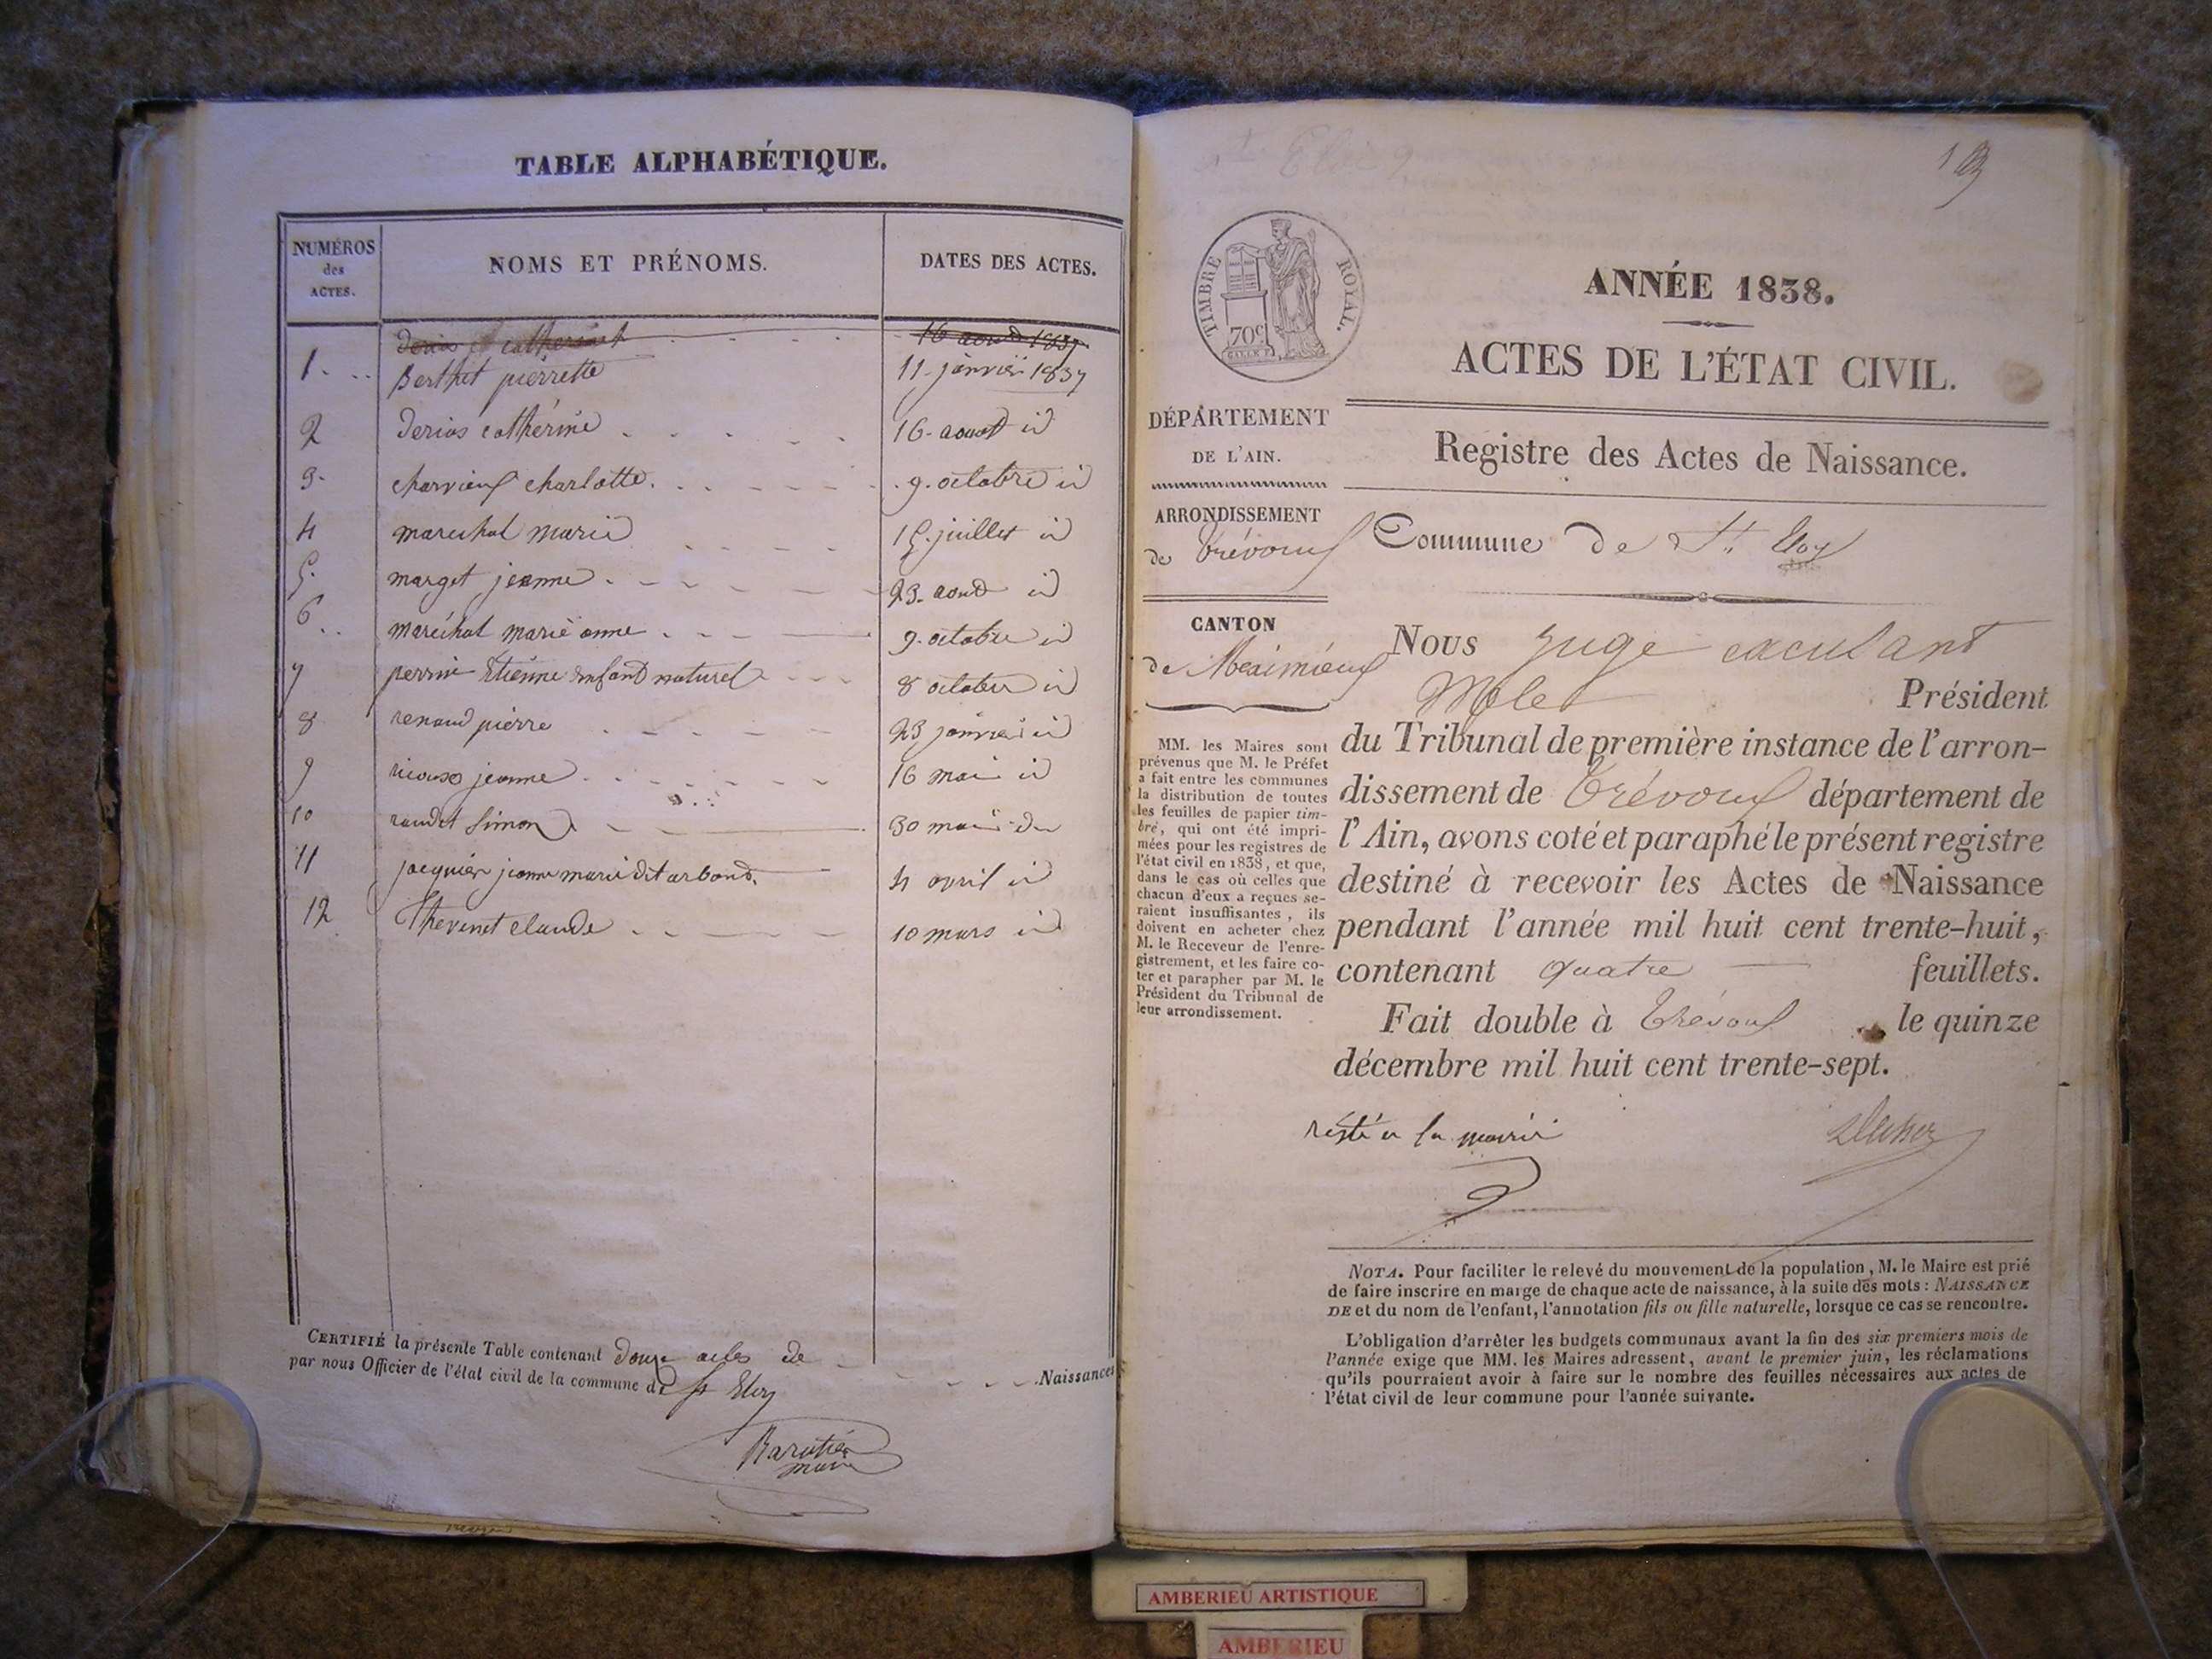 TABLE ALPHABÉTIQUE.
NUMÉROS des ACTES.
NOMS ET PRÉNOMS.
DATES DES ACTES.
16 aout 1837
1. Berthet pierrette 11 janvier 1837
2 derios catherine 16 aout id
3. charvieux charlotte. 9. octobre id
4 marechal marie 15. juillet id
5. marget jeanne 23. aout id
6 maréchal marie anne 9. octobre id
7 perrin Etienne enfant naturel 8 octobre id
8 renaud pierre 23 janvier id
9 rioux jeanne 16 mai id
10 raudet Simon 30 mai du
11 jacquier jeanne marie dit arband. 4 avril id
12 Thevenet claude 10 mars id
CERTIFIÉ la présente Table contenant douze actes de Naissances
par nous Officier de l'état civil de la commune de St Eloy
Barutier
maire
TIMBRE ROYAL.
70c
ANNÉE 1838.
ACTES DE L'ÉTAT CIVIL.
DÉPARTEMENT
DE L'AIN.
Registre des Actes de Naissance.
ARRONDISSEMENT
de Trévoux
Commune de St. Eloy
CANTON
de Meximieux
MM. les Maires sont
prévenus que M. le Préfet
a fait entre les communes
la distribution de toutes
les feuilles de papier tim-
bré, qui ont été impri-
mées pour les registres de
l'état civil en 1838, et que,
dans le cas où celles que
chacun d'eux a reçues se-
raient insuffisantes, ils
doivent en acheter chez
M. le Receveur de l'enre-
gistrement, et les faire co-
ter et parapher par M. le
Président du Tribunal de
leur arrondissement.
Nous Juge
Président
du Tribunal de première instance de l'arron-
dissement de Trévoux département de
l'Ain, avons coté et paraphé le présent registre
destiné à recevoir les Actes de Naissance
pendant l'année mil huit cent trente-huit,
contenant quatre feuillets.
Fait double à Trévoux le quinze
décembre mil huit cent trente-sept.
résté a la mairie
NOTA. Pour faciliter le relevé du mouvement de la population, M. le Maire est prié
de faire inscrire en marge de chaque acte de naissance, à la suite des mots : NAISSANCE
DE et du nom de l'enfant, l'annotation fils ou fille naturelle, lorsque ce cas se rencontre.
L'obligation d'arrêter les budgets communaux avant la fin des six premiers mois de
l'année exige que MM. les Maires adressent, avant le premier juin, les réclamations
qu'ils pourraient avoir à faire sur le nombre des feuilles nécessaires aux actes de
l'état civil de leur commune pour l'année suivante.
AMBERIEU ARTISTIQUE
AMBERIEU